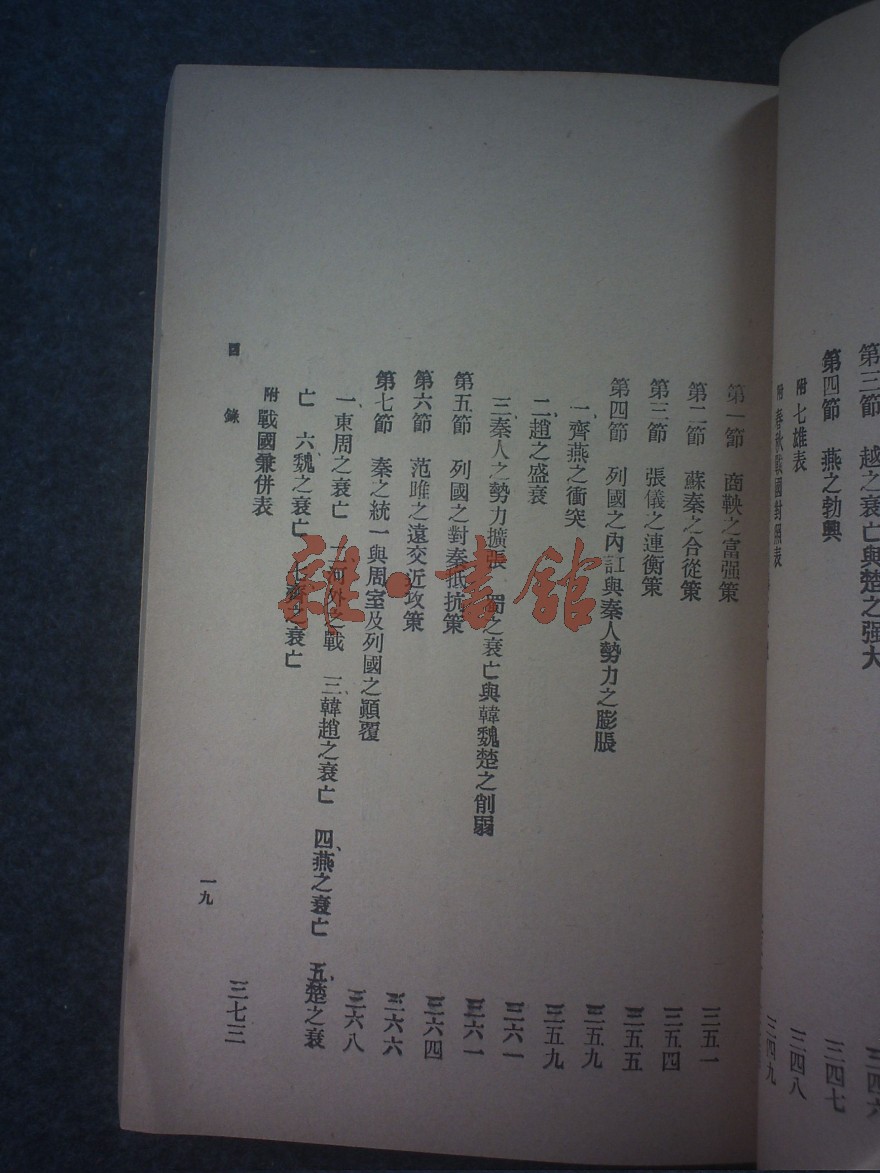 第三節　越之衰亡與楚之强大　三四六
第四節　燕之勃興　三四七
附七雄表　三四八
附春秋戰國對照表　三四九
第一節　商鞅之富强策　三五一
第二節　蘇秦之合從策　三五四
第三節　張儀之連衡策　三五五
第四節　列國之內訌與秦人勢力之膨脹　三五九
一、齊燕之衝突　三五九
二、趙之盛衰　三六一
三、秦人之勢力擴張　蜀之衰亡與韓魏楚之削弱　三六一
第五節　列國之對秦抵抗策　三六四
第六節　范雎之遠交近攻策　三六六
第七節　秦之統一與周室及列國之顚覆　三六八
一、東周之衰亡　二、河外之戰　三、韓趙之衰亡　四、燕之衰亡　五、楚之衰
亡　六、魏之衰亡　七、齊之衰亡
附戰國兼併表　三七三
目錄　一九
雜·書館